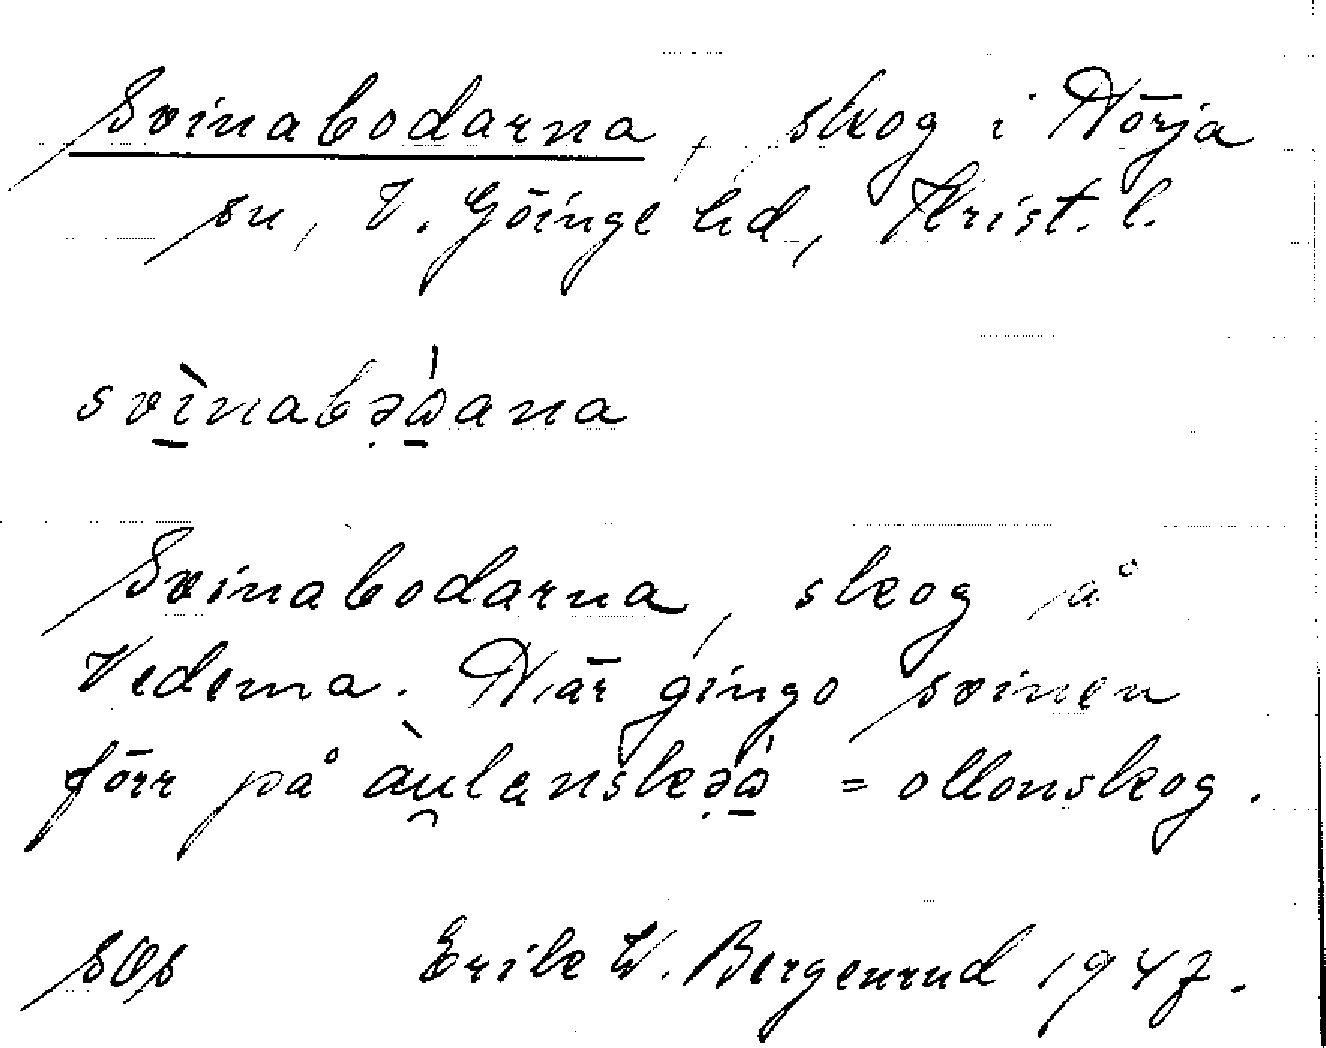 Svinabodarna, skog i Nörja
sn, V. Göinge hd, Krist. l.
svì̱nabə̣ώ̱ana
Svinabodarna, skog å
Vedema. När gingo svinen
förr på àu̯lanskə̣ώ̱ = ollonskog.
SOs Erik W. Bergenrud 1947.